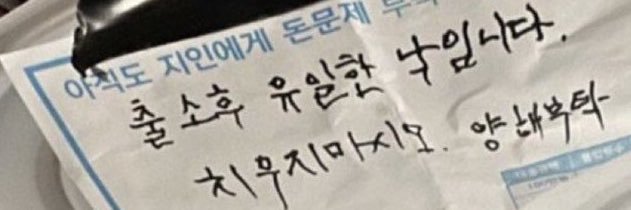 아직도 지인에게 돈문제
출소후 유일한 낙입니다.
치우지마시오. 양해부탁